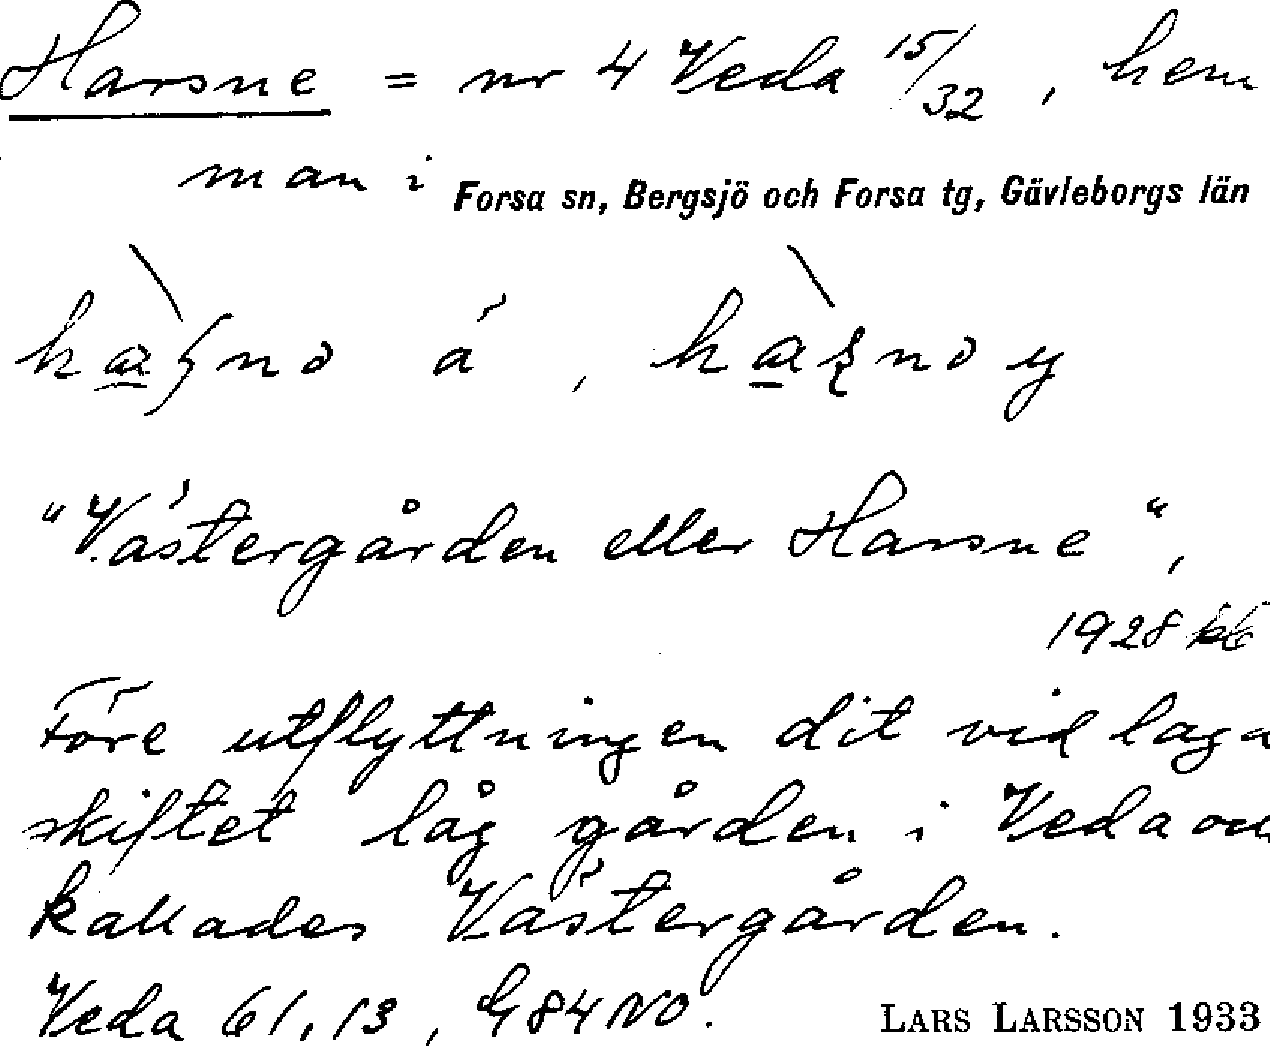 Harsne = nr 4 Veda 15/32, hem
man i Forsa sn, Bergsjö och Forsa tg, Gävleborgs län
"Västergården eller Harsne",
1928
Före utflyttningen dit vid laga
skiftet låg gården i Veda och
kallades Västergården.
Veda 61,13, G84NO.
LARS LARSSON 1933